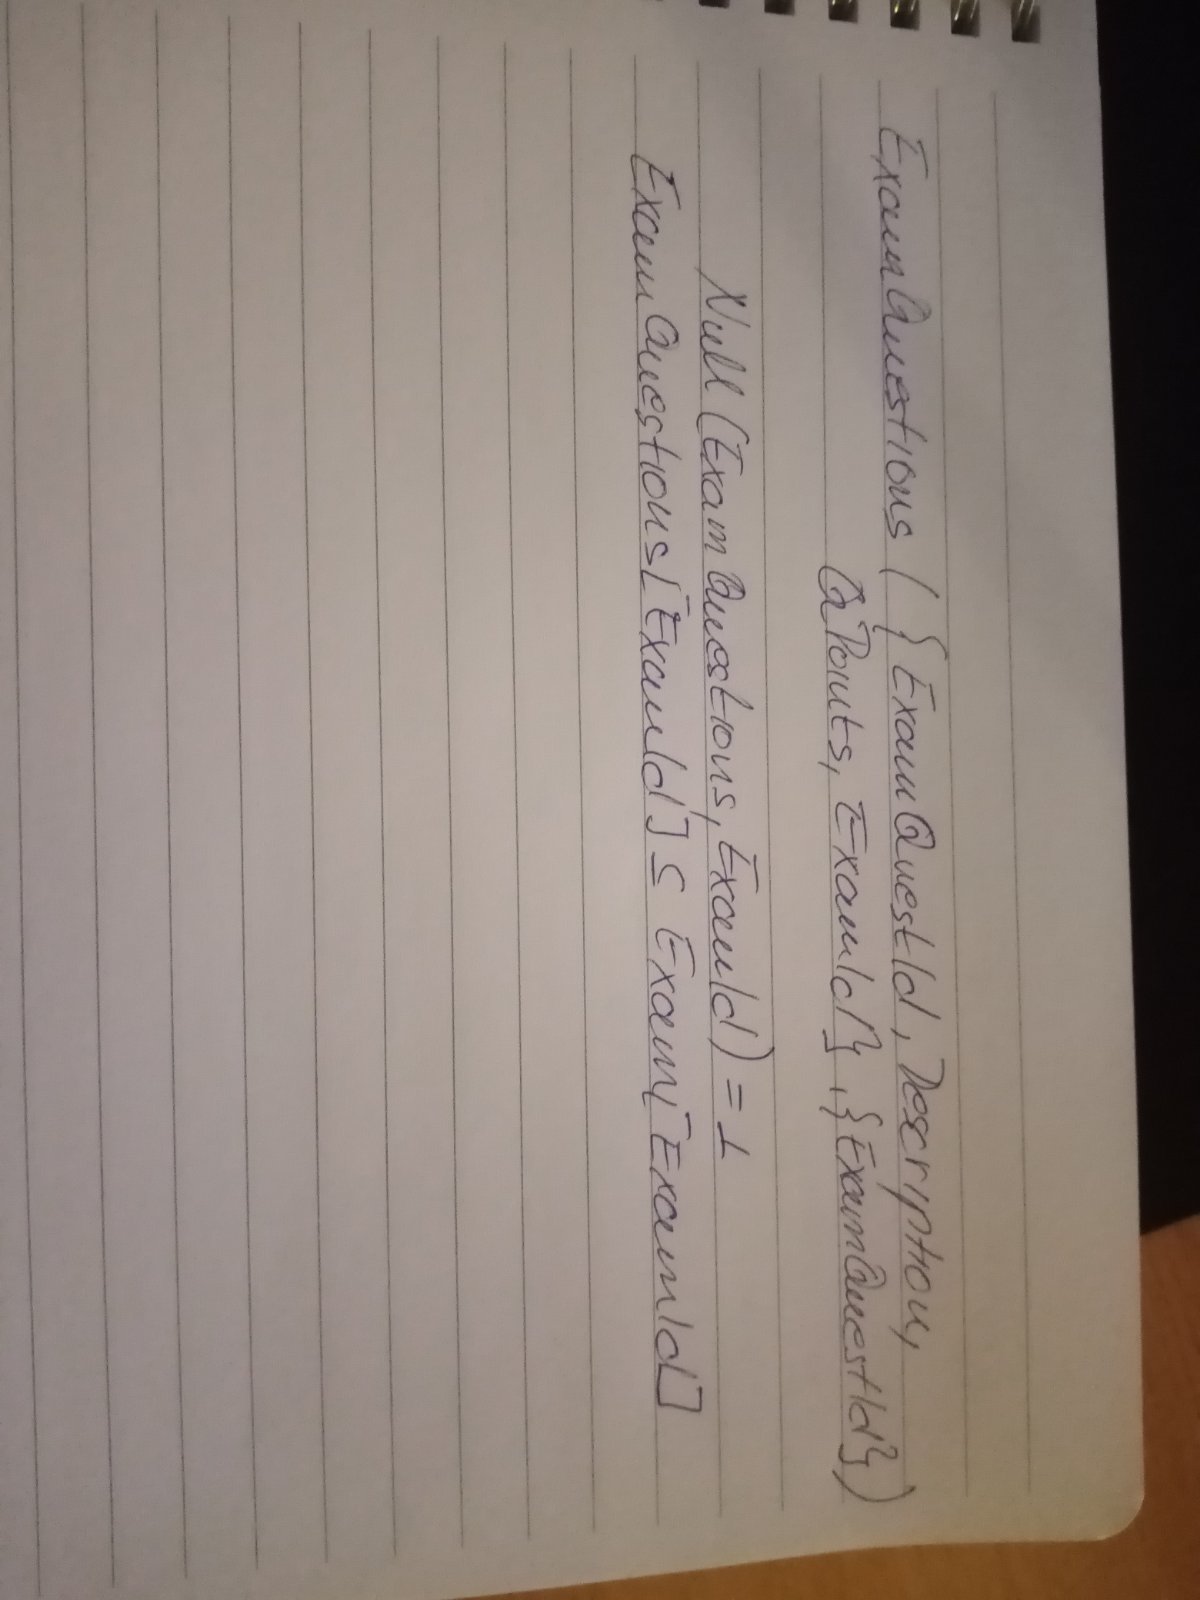 ExamQuestions ( { ExamQuestId, Description,
QPoints, ExamId} , {ExamQuestId} )
Null (ExamQuestions, ExamId) = ⊥
ExamQuestions[ExamId] ⊆ Exam[ExamId]